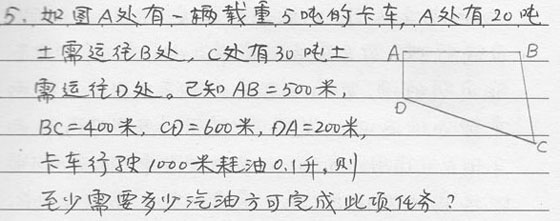 5. 如图A处有一辆载重5吨的卡车, A处有20吨
土需运往B处, C处有30吨土
需运往D处。已知AB=500米,
BC=400米, CD=600米, DA=200米,
卡车行驶1000米耗油0.1升, 则
至少需要多少汽油方可完成此项任务?
A
B
D
C